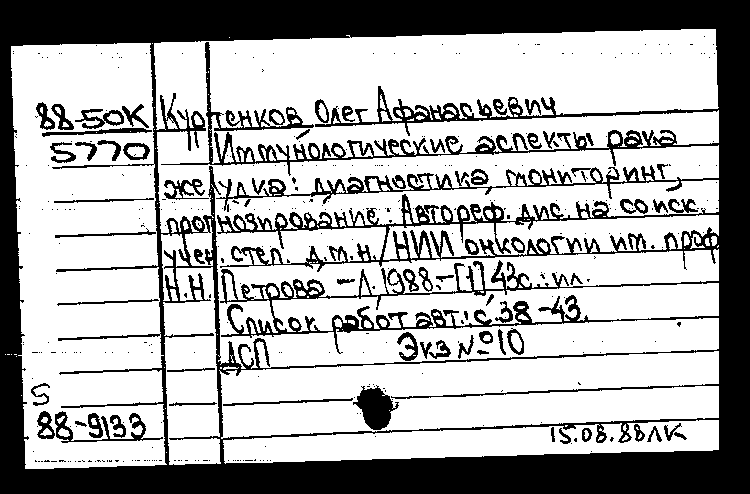 88-50К Куртенков Олег Афанасьевич
5770 Иммунологические аспекты рака
желудка: диагностика, мониторинг,
прогнозирование: Автореф. дис. на соиск.
учен. степ. д.м.н./НИИ онкологии им. проф
Н.Н. Петрова – Л. 1988.-[1] 43с.: ил.
Список работ авт.: с. 38-43.
ДСП Экз № 10
S
88-9133
15.08.88ЛК